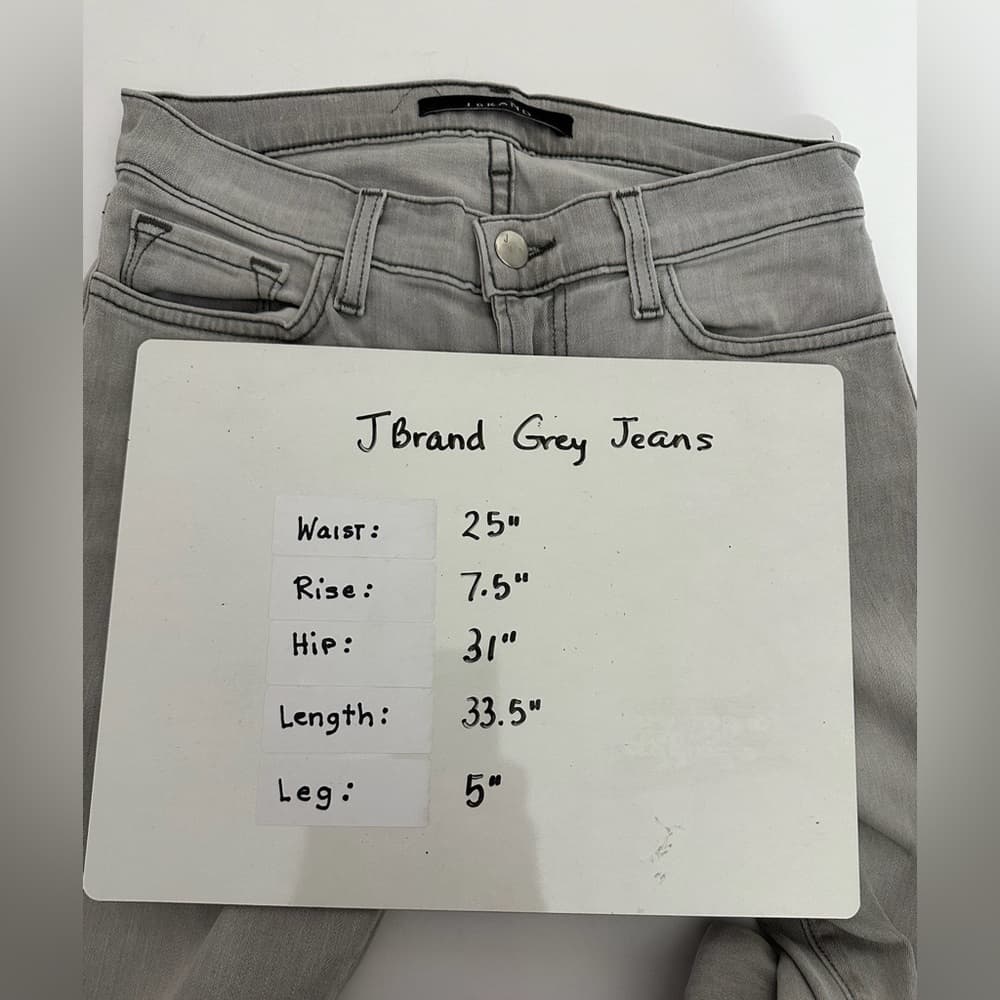 J BRAND
J Brand Grey Jeans
Waist: 25"
Rise: 7.5"
Hip: 31"
Length: 33.5"
Leg: 5"